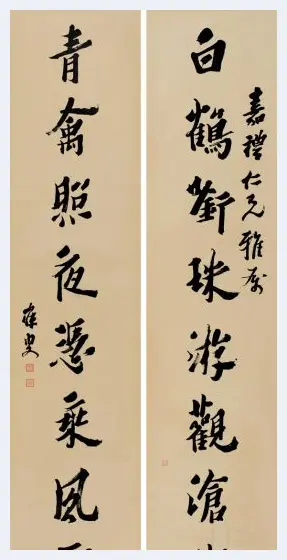 白鶴銜珠游觀滄
嘉禮仁兄雅屬
青禽照夜憑乘風